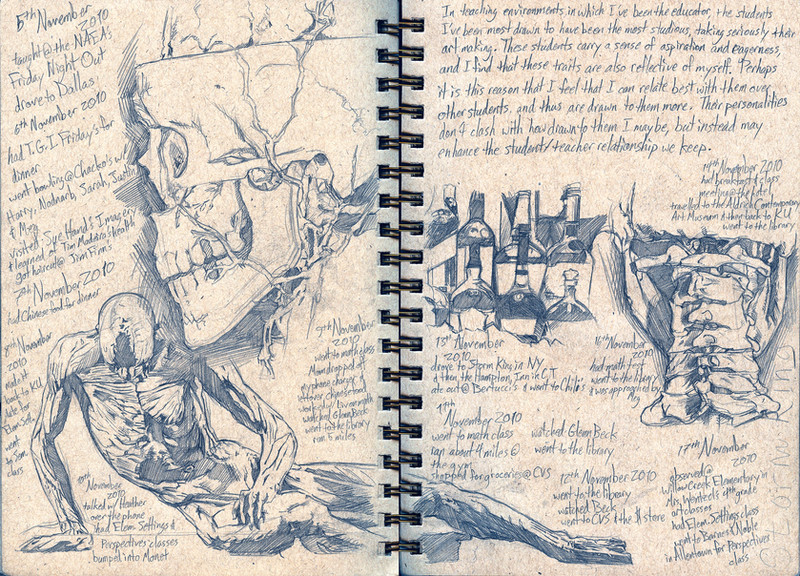 5th November
2010
taught @ the NAEA's
Friday Night Out
drove to Dallas
6th November 2010
had T.G.I. Friday's for
dinner
went bowling @ Chacko's w/
Harry, Nodnarb, Sarah, Justin
& Meg
visited Sue Hand's Imagery
& learned of Tim Madeira's health
got haircut @ Jim Finns
7th November 2010
had Chinese food for dinner
8th November
2010
made it
back to KU
late for
Elem. Sett.
went
to Sem.
class
9th November
2010
went to math class
Mom dropped off
my phone charger &
leftover chinese food
watched Glenn Beck
went to the library
ran 5 miles
10th
November
2010
talked w/ Heather
over the phone
had Elem. Settings &
Perspectives classes
bumped into Monet
In teaching environments in which I've been the educator, the students
I've been most drawn to have been the most studious, taking seriously their
art making. These students carry a sense of aspiration and eagerness,
and I find that these traits are also reflective of myself. Perhaps
it is this reason that I feel that I can relate best with them over
other students, and thus are drawn to them more. Their personalities
don't clash with how drawn to them I may be, but instead may
enhance the student/teacher relationship we keep.
14th November 2010
had breakfast & class
meeting @ the hotel
travelled to the Aldrich Contemporary
Art Museum & then back to KU
went to the library
13th November
2010
drove to Storm King in NY
& then the Hampton Inn in CT
ate out @ Bertucci's & went to Chili's
16th November
2010
had math test
went to the library
& was approached by
Meg
11th
November 2010
went to math class
ran about 4 miles @
the gym
shopped for groceries @ CVS
watched Glenn Beck
went to the library
12th November 2010
went to the library
watched Beck
went to CVS & the $ store
17th November
2010
observed @
Willow Creek Elementary in
Mrs. 4th grade
art classes
had Elem. Settings class
went to Barnes & Noble
in Allentown for Perspectives
class